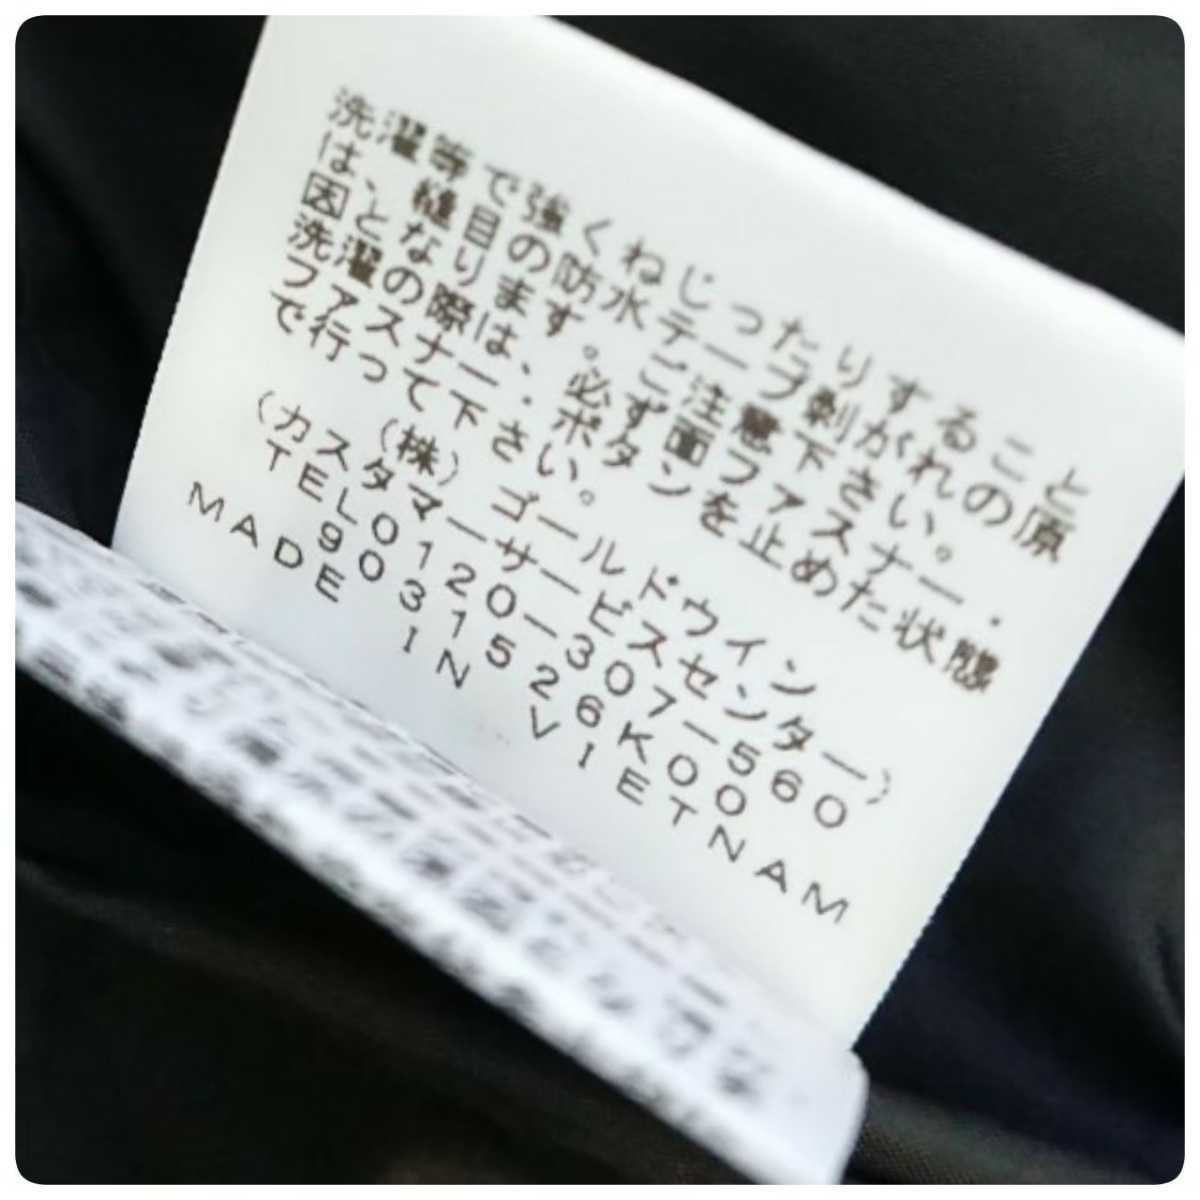 洗濯等で強くねじったりすること
は、縫目の防水テープ剥がれの原
因となります。ご注意下さい。
洗濯の際は、必ず面ファスナー・
ファスナー・ボタンを止めた状態
で行って下さい。
(株)ゴールドウイン
(カスタマーサービスセンター)
TEL0120−307−560
9031526K00
MADE IN VIETNAM